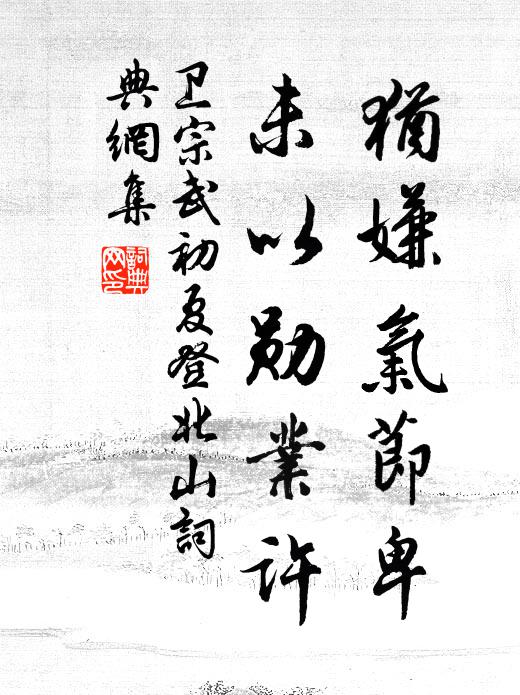 猶嫌氣節卑
未以勋業許
卫宗武初夏登北山詞
典網集
詞典
网印